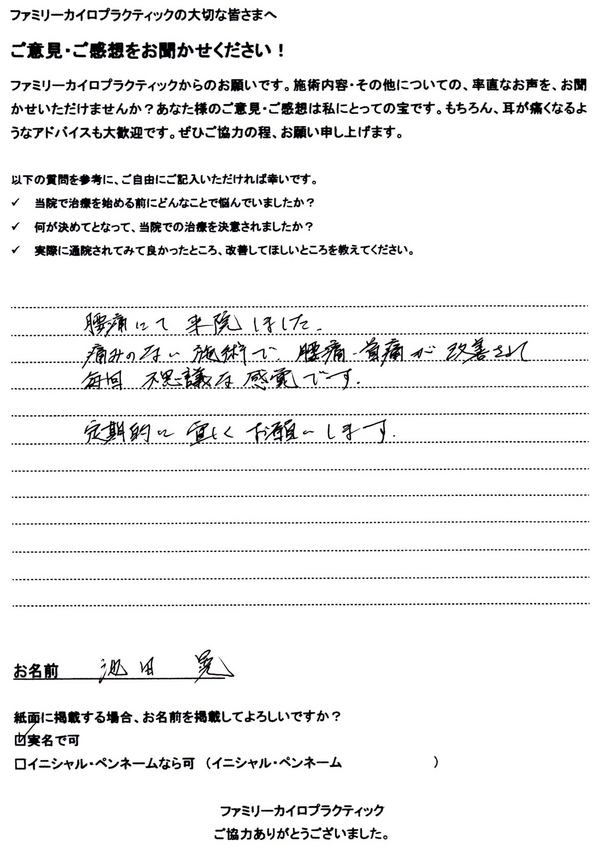 ファミリーカイロプラクティックの大切な皆さまへ
ご意見・ご感想をお聞かせください！
ファミリーカイロプラクティックからのお願いです。施術内容・その他についての、率直なお声を、お聞
かせいただけませんか？あなた様のご意見・ご感想は私にとっての宝です。もちろん、耳が痛くなるよ
うなアドバイスも大歓迎です。ぜひご協力の程、お願い申し上げます。
以下の質問を参考に、ご自由にご記入いただければ幸いです。
✓ 当院で治療を始める前にどんなことで悩んでいましたか？
✓ 何が決めてとなって、当院での治療を決意されましたか？
✓ 実際に通院されてみて良かったところ、改善してほしいところを教えてください。
腰痛にて来院しました。
痛みのない施術で、腰痛・首痛が改善されて
毎回不思議な感覚です。
定期的に宜しくお願いします。
お名前 池田 晃
紙面に掲載する場合、お名前を掲載してよろしいですか？
☑実名で可
□イニシャル・ペンネームなら可 （イニシャル・ペンネーム ）
ファミリーカイロプラクティック
ご協力ありがとうございました。